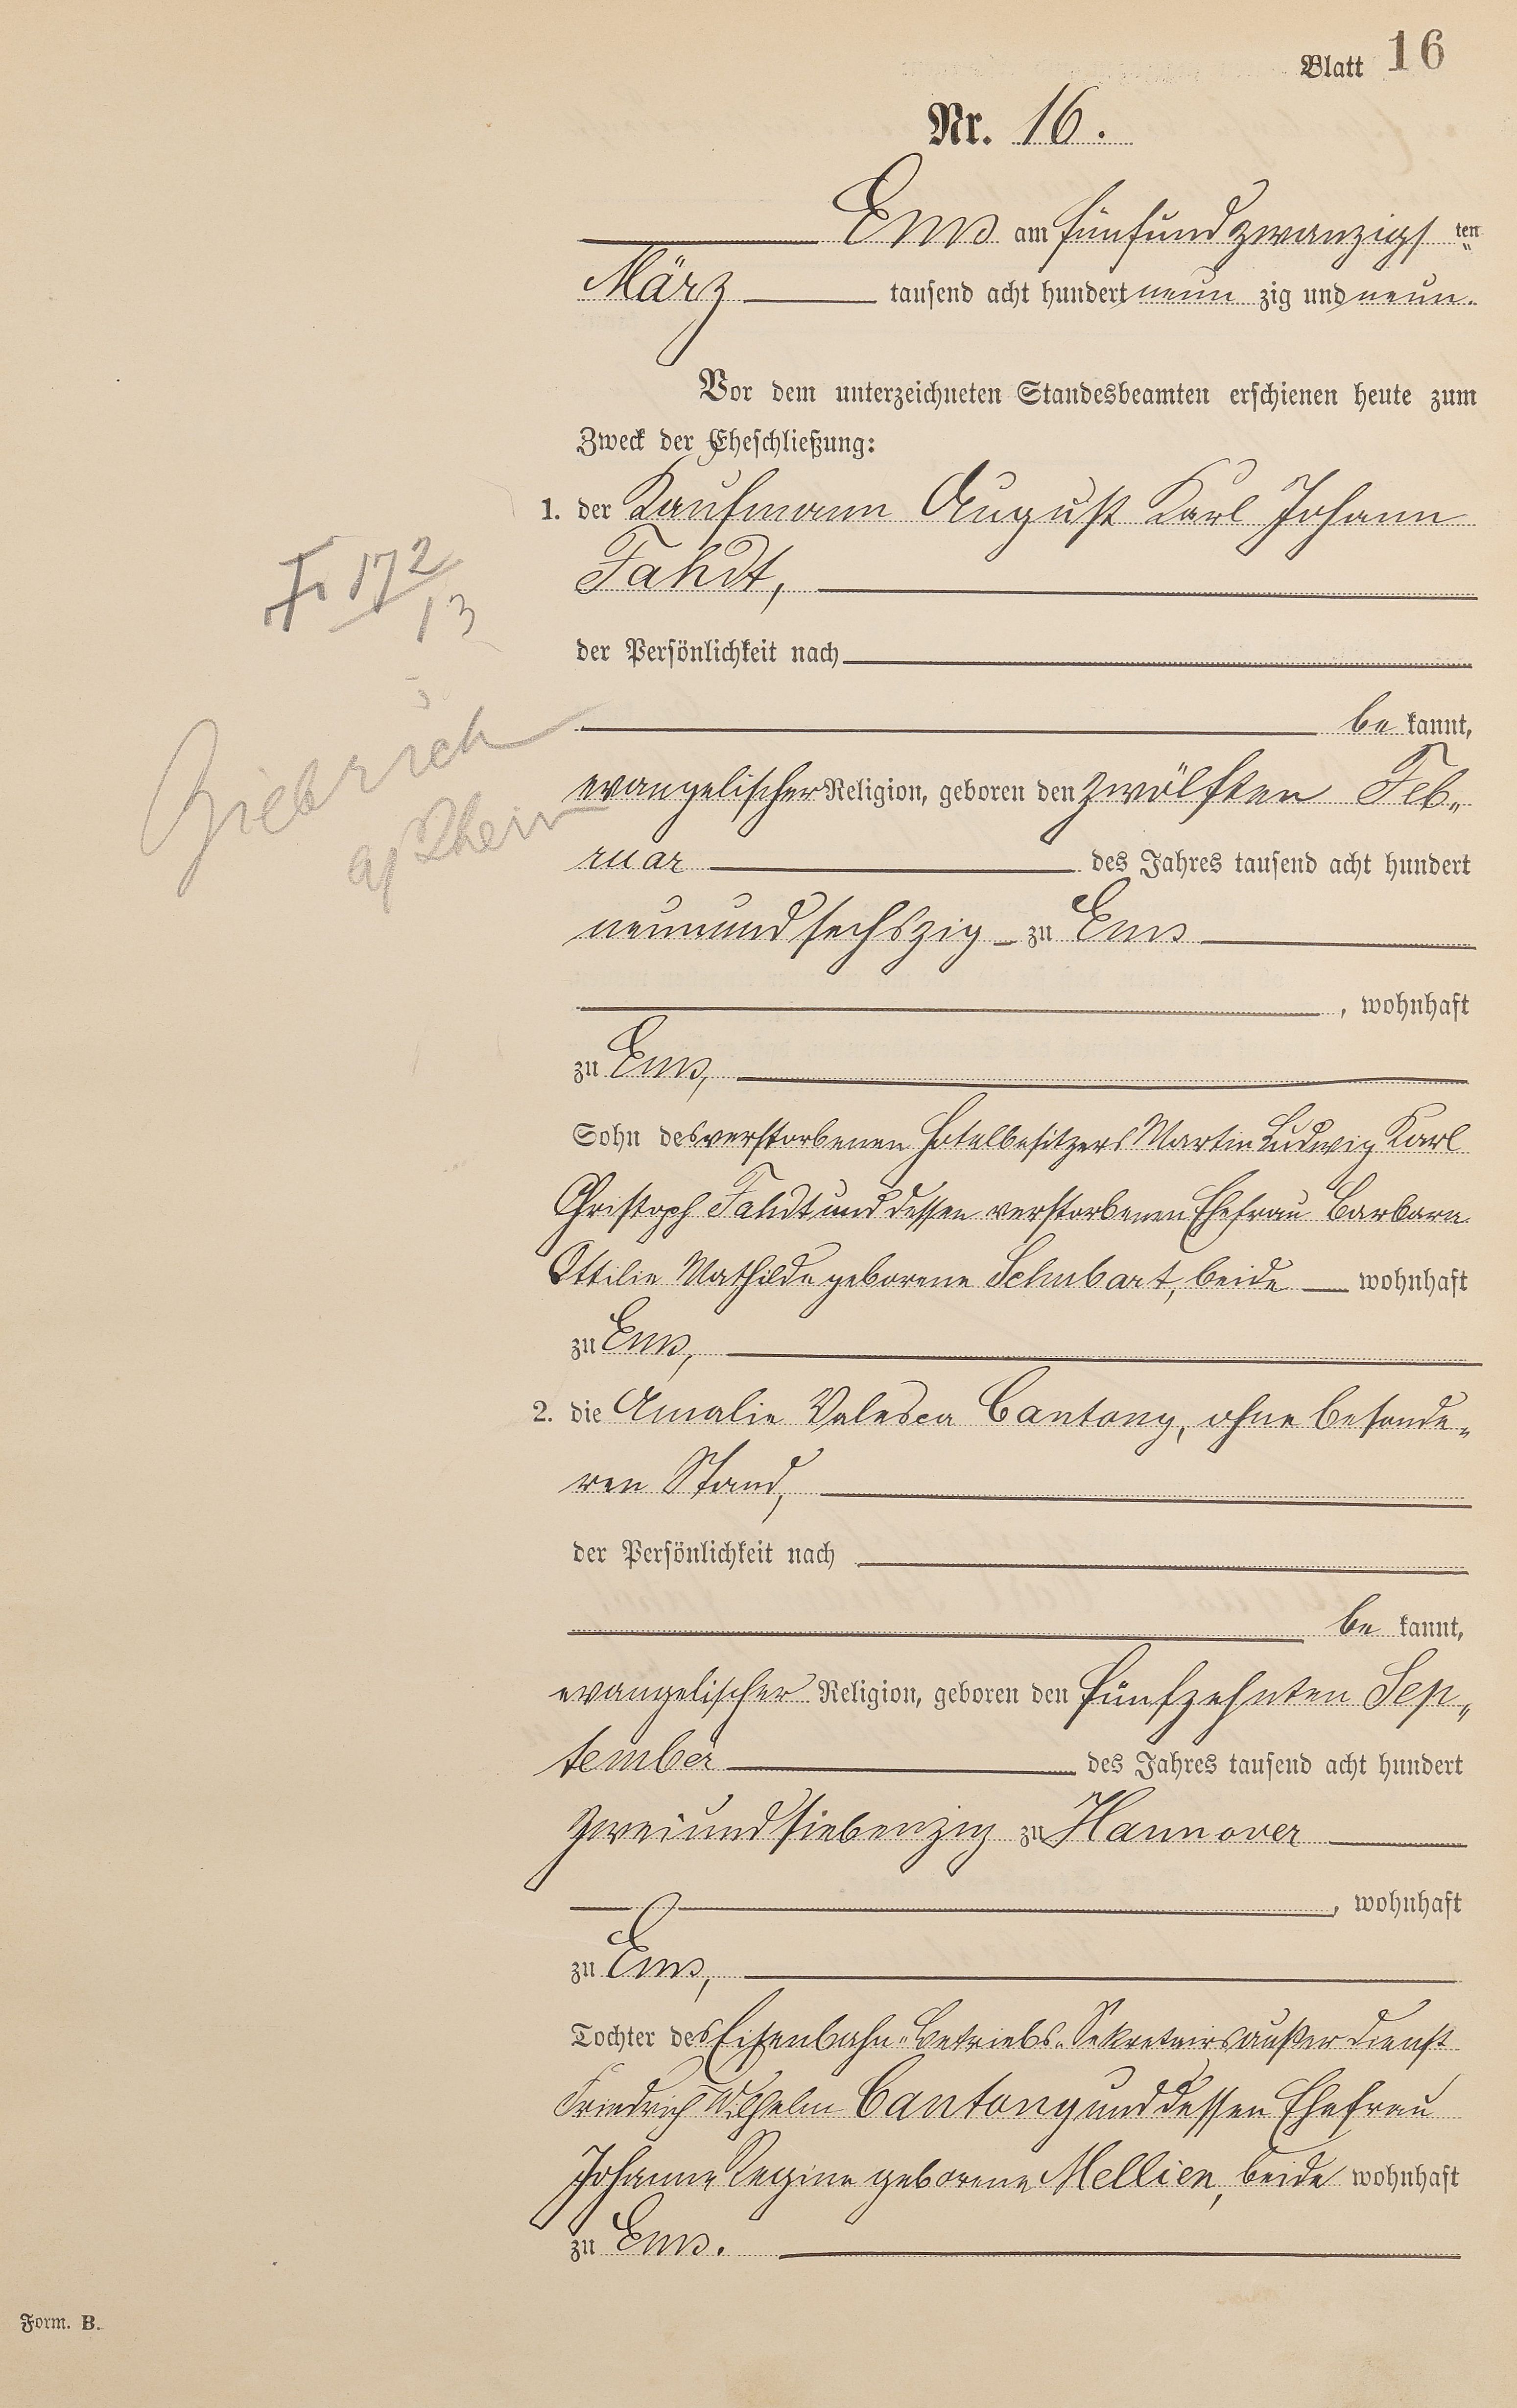 Blatt 16
Nr. 16.
Ems am fünfundzwanzigsten
März tausend acht hundert neunzig und neun.
Vor dem unterzeichneten Standesbeamten erschienen heute zum
Zweck der Eheschließung:
1. der Kaufmann August Karl Johann
Fahdt,
der Persönlichkeit nach
bekannt,
evangelischer Religion, geboren den zwölften Feb-
ruar des Jahres tausend acht hundert
neunundsechszig zu Ems
, wohnhaft
zu Ems,
Sohn des verstorbenen Hotelbesitzers Martin Ludwig Karl
Christoph Fahdt und dessen verstorbenen Ehefrau Barbara
Ottilie Mathilde geborene Schubart, beide wohnhaft
zu Ems,
2. die Amalie Valesca Cantony, ohne besonde-
ren Stand,
der Persönlichkeit nach
bekannt,
evangelischer Religion, geboren den fünfzehnten Sep-
tember des Jahres tausend acht hundert
zweiundsiebenzig zu Hannover
, wohnhaft
zu Ems,
Tochter des Eisenbahn-Betriebs-Sekretairs außer Dienst
Friedrich Wilhelm Cantony und dessen Ehefrau
Johanne Regine geborene Mellien, beide wohnhaft
zu Ems.
172
13
Biebrich
a/Rhein
Form. B.